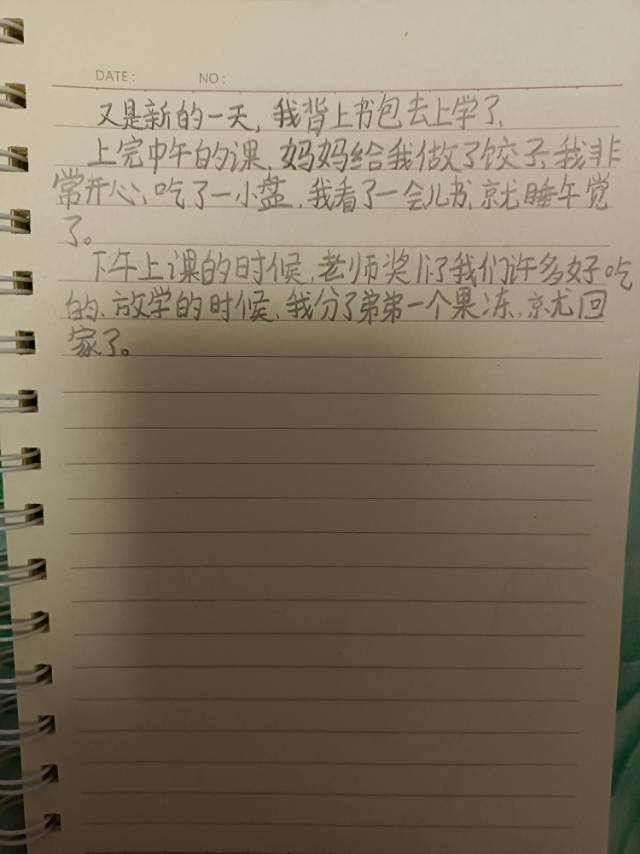 DATE: NO:
又是新的一天,我背上书包去上学了、
上完中午的课、妈妈给我做了饺子、我非
常开心,吃了一小盘、我看了一会儿书、就睡午觉
了。
下午上课的时候,老师奖了我们许多好吃
的、放学的时候、我分了弟弟一个果冻、就回
家了。